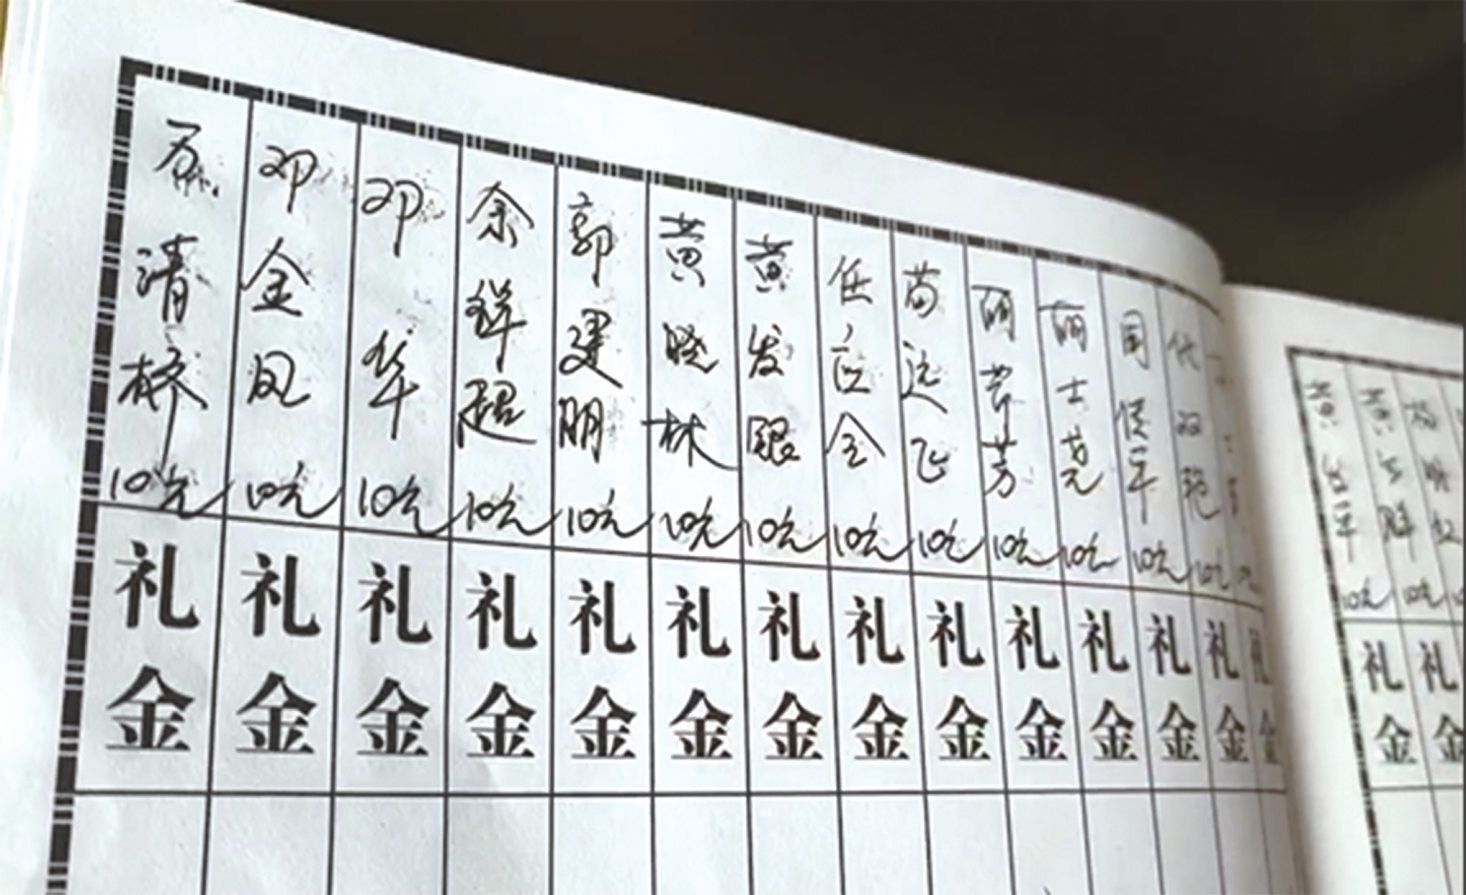 清桥 10元
邓金凤 10元
邓华 10元
余锌超 10元
郭建明 10元
黄晓林 10元
黄发银 10元
任应全 10元
苗远飞 10元
芳 10元
士亮 10元
周俊平 10元
代双艳 10元
礼金
礼金
礼金
礼金
礼金
礼金
礼金
礼金
礼金
礼金
礼金
礼金
礼金
礼金
黄 平 10元
黄 10元
礼金
礼金